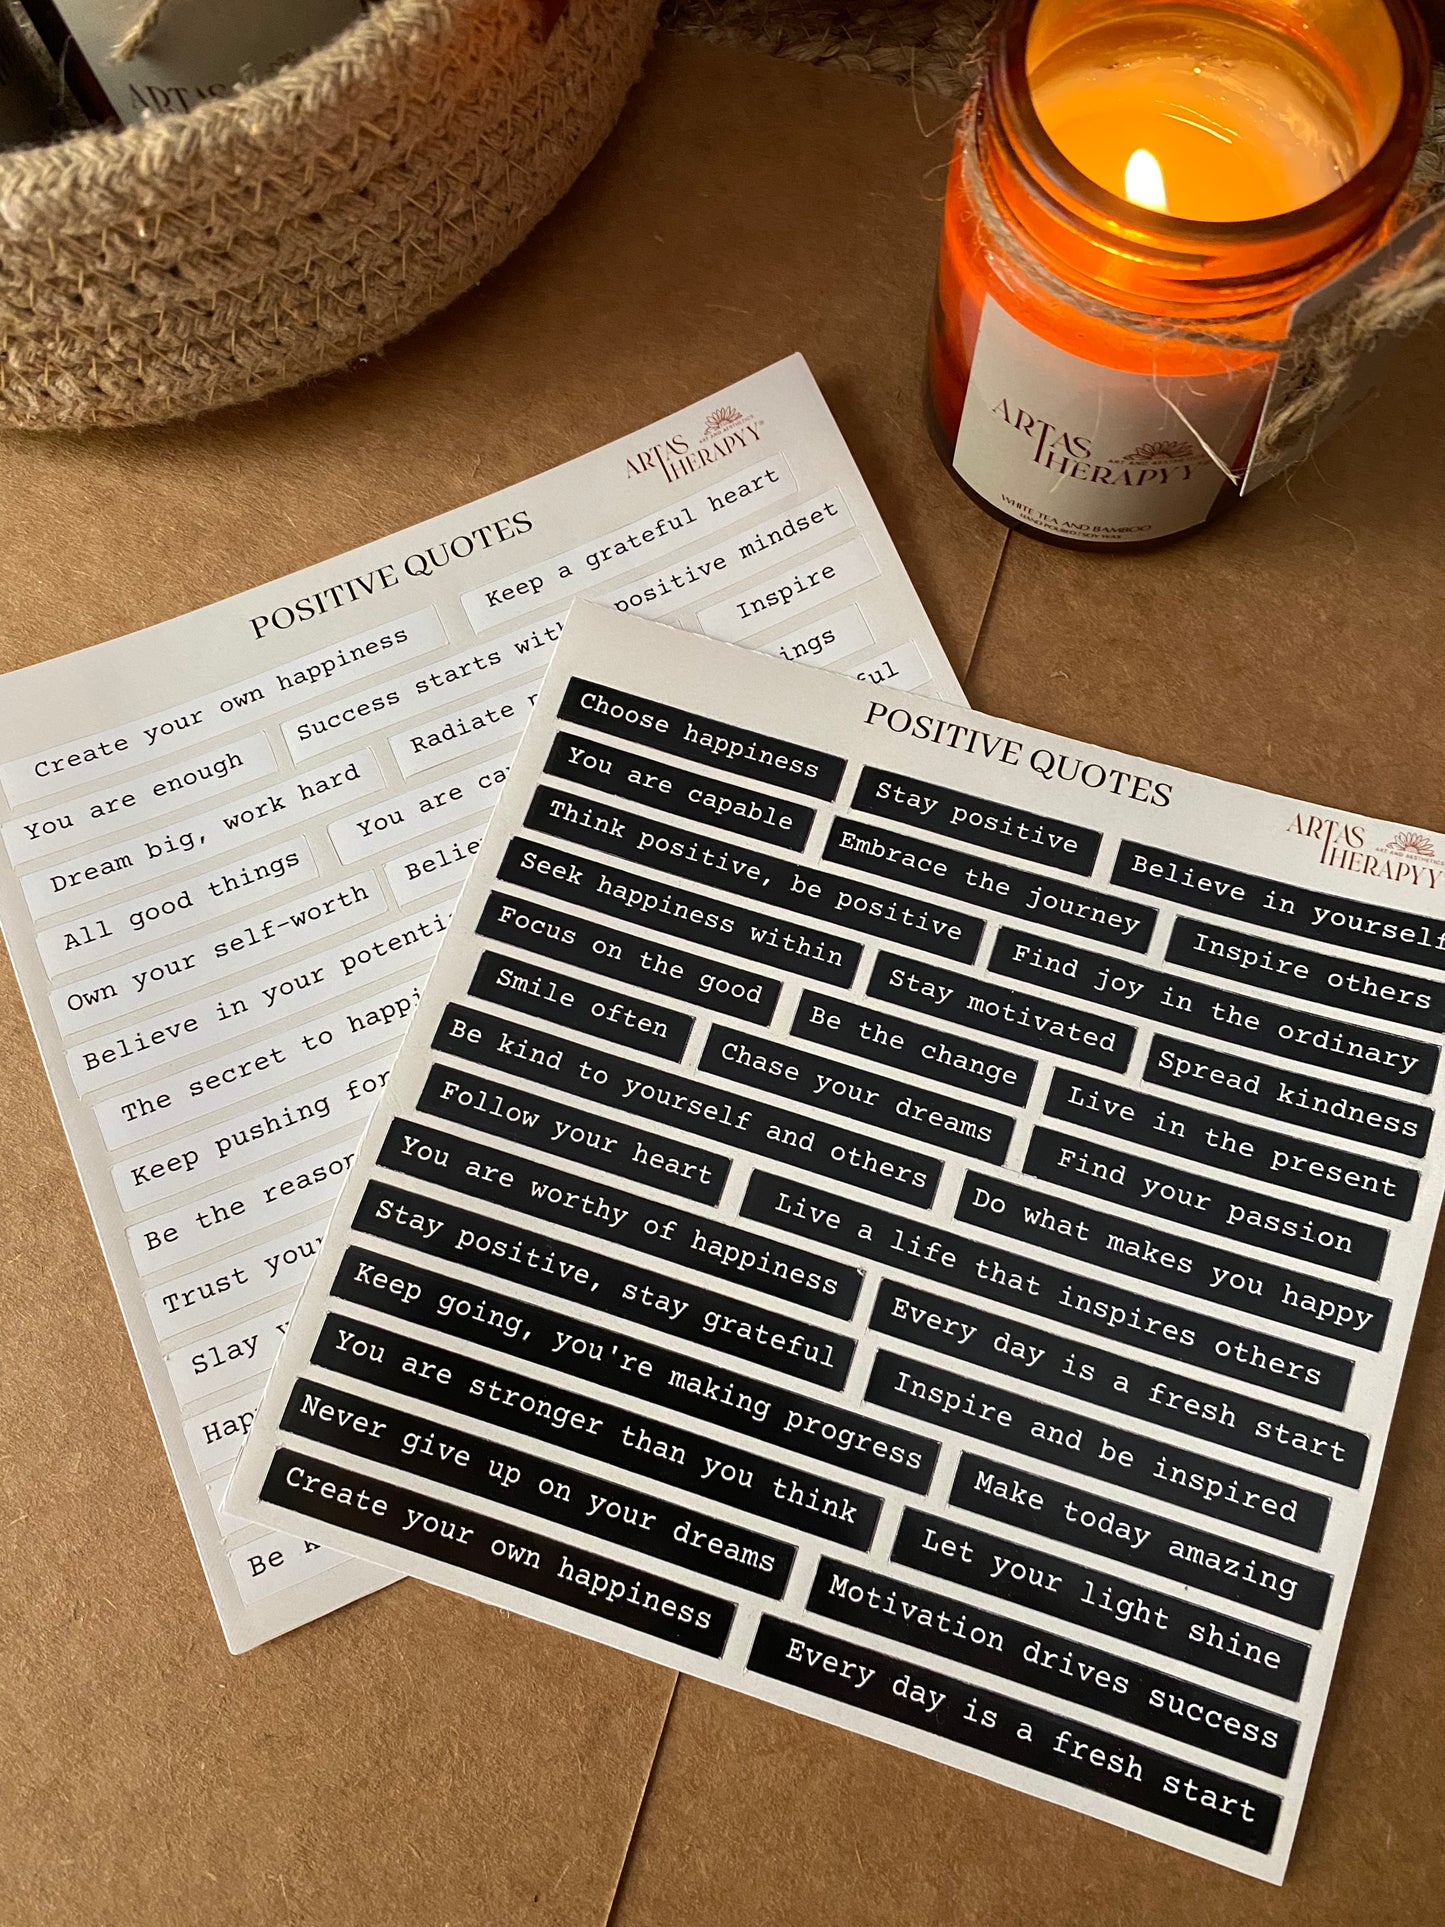 ARTAS
ARTAS
THERAPYY
ART AND AESTHETICS
WHITE TEA AND BAMBOO
HAND POURED | SOY WAX
ARTAS
THERAPYY®
ART AND AESTHETICS
POSITIVE QUOTES
Keep a grateful heart
Create your own happiness
Success starts with positive mindset
You are enough
Radiate
Inspire
Dream big, work hard
You are
All good things
Own your self-worth
Believe in your
The secret to
Keep pushing
Be the
Trust
Slay
Be
POSITIVE QUOTES
ARTAS
THERAPYY
ART AND AESTHETICS
Choose happiness
Stay positive
Believe in yourself
You are capable
Embrace the journey
Inspire others
Think positive, be positive
Find joy in the ordinary
Seek happiness within
Stay motivated
Spread kindness
Focus on the good
Be the change
Live in the present
Smile often
Chase your dreams
Find your passion
Be kind to yourself and others
Do what makes you happy
Follow your heart
Live a life that inspires others
You are worthy of happiness
Every day is a fresh start
Stay positive, stay grateful
Inspire and be inspired
Keep going, you're making progress
Make today amazing
You are stronger than you think
Let your light shine
Never give up on your dreams
Motivation drives success
Create your own happiness
Every day is a fresh start